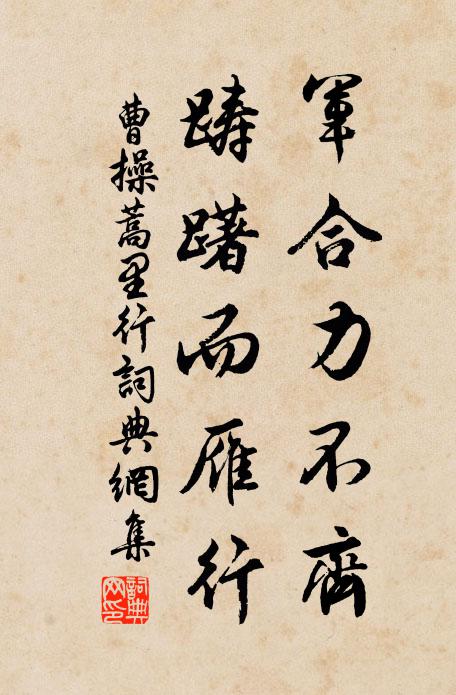 軍合力不齊
躊躇而雁行
曹操蒿里行詞典網集
詞典網印